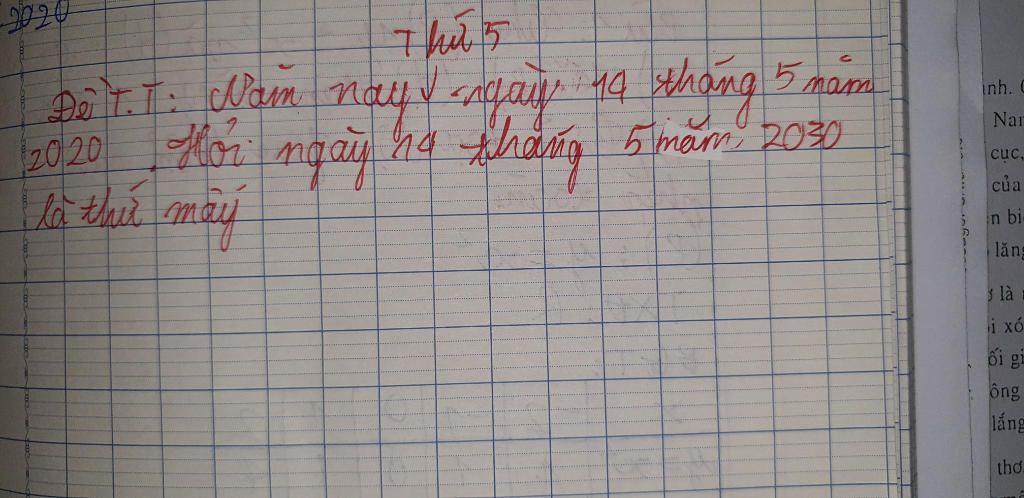 2020
Thứ 5
Đề T.T: Năm nay ngày 14 tháng 5 năm
2020. Hỏi ngày 14 tháng 5 năm 2030
là thứ mấy
ành. 
Nam
cục,
của
n bi
lăng
là
i xó
ối gi
ông
lắng
thơ